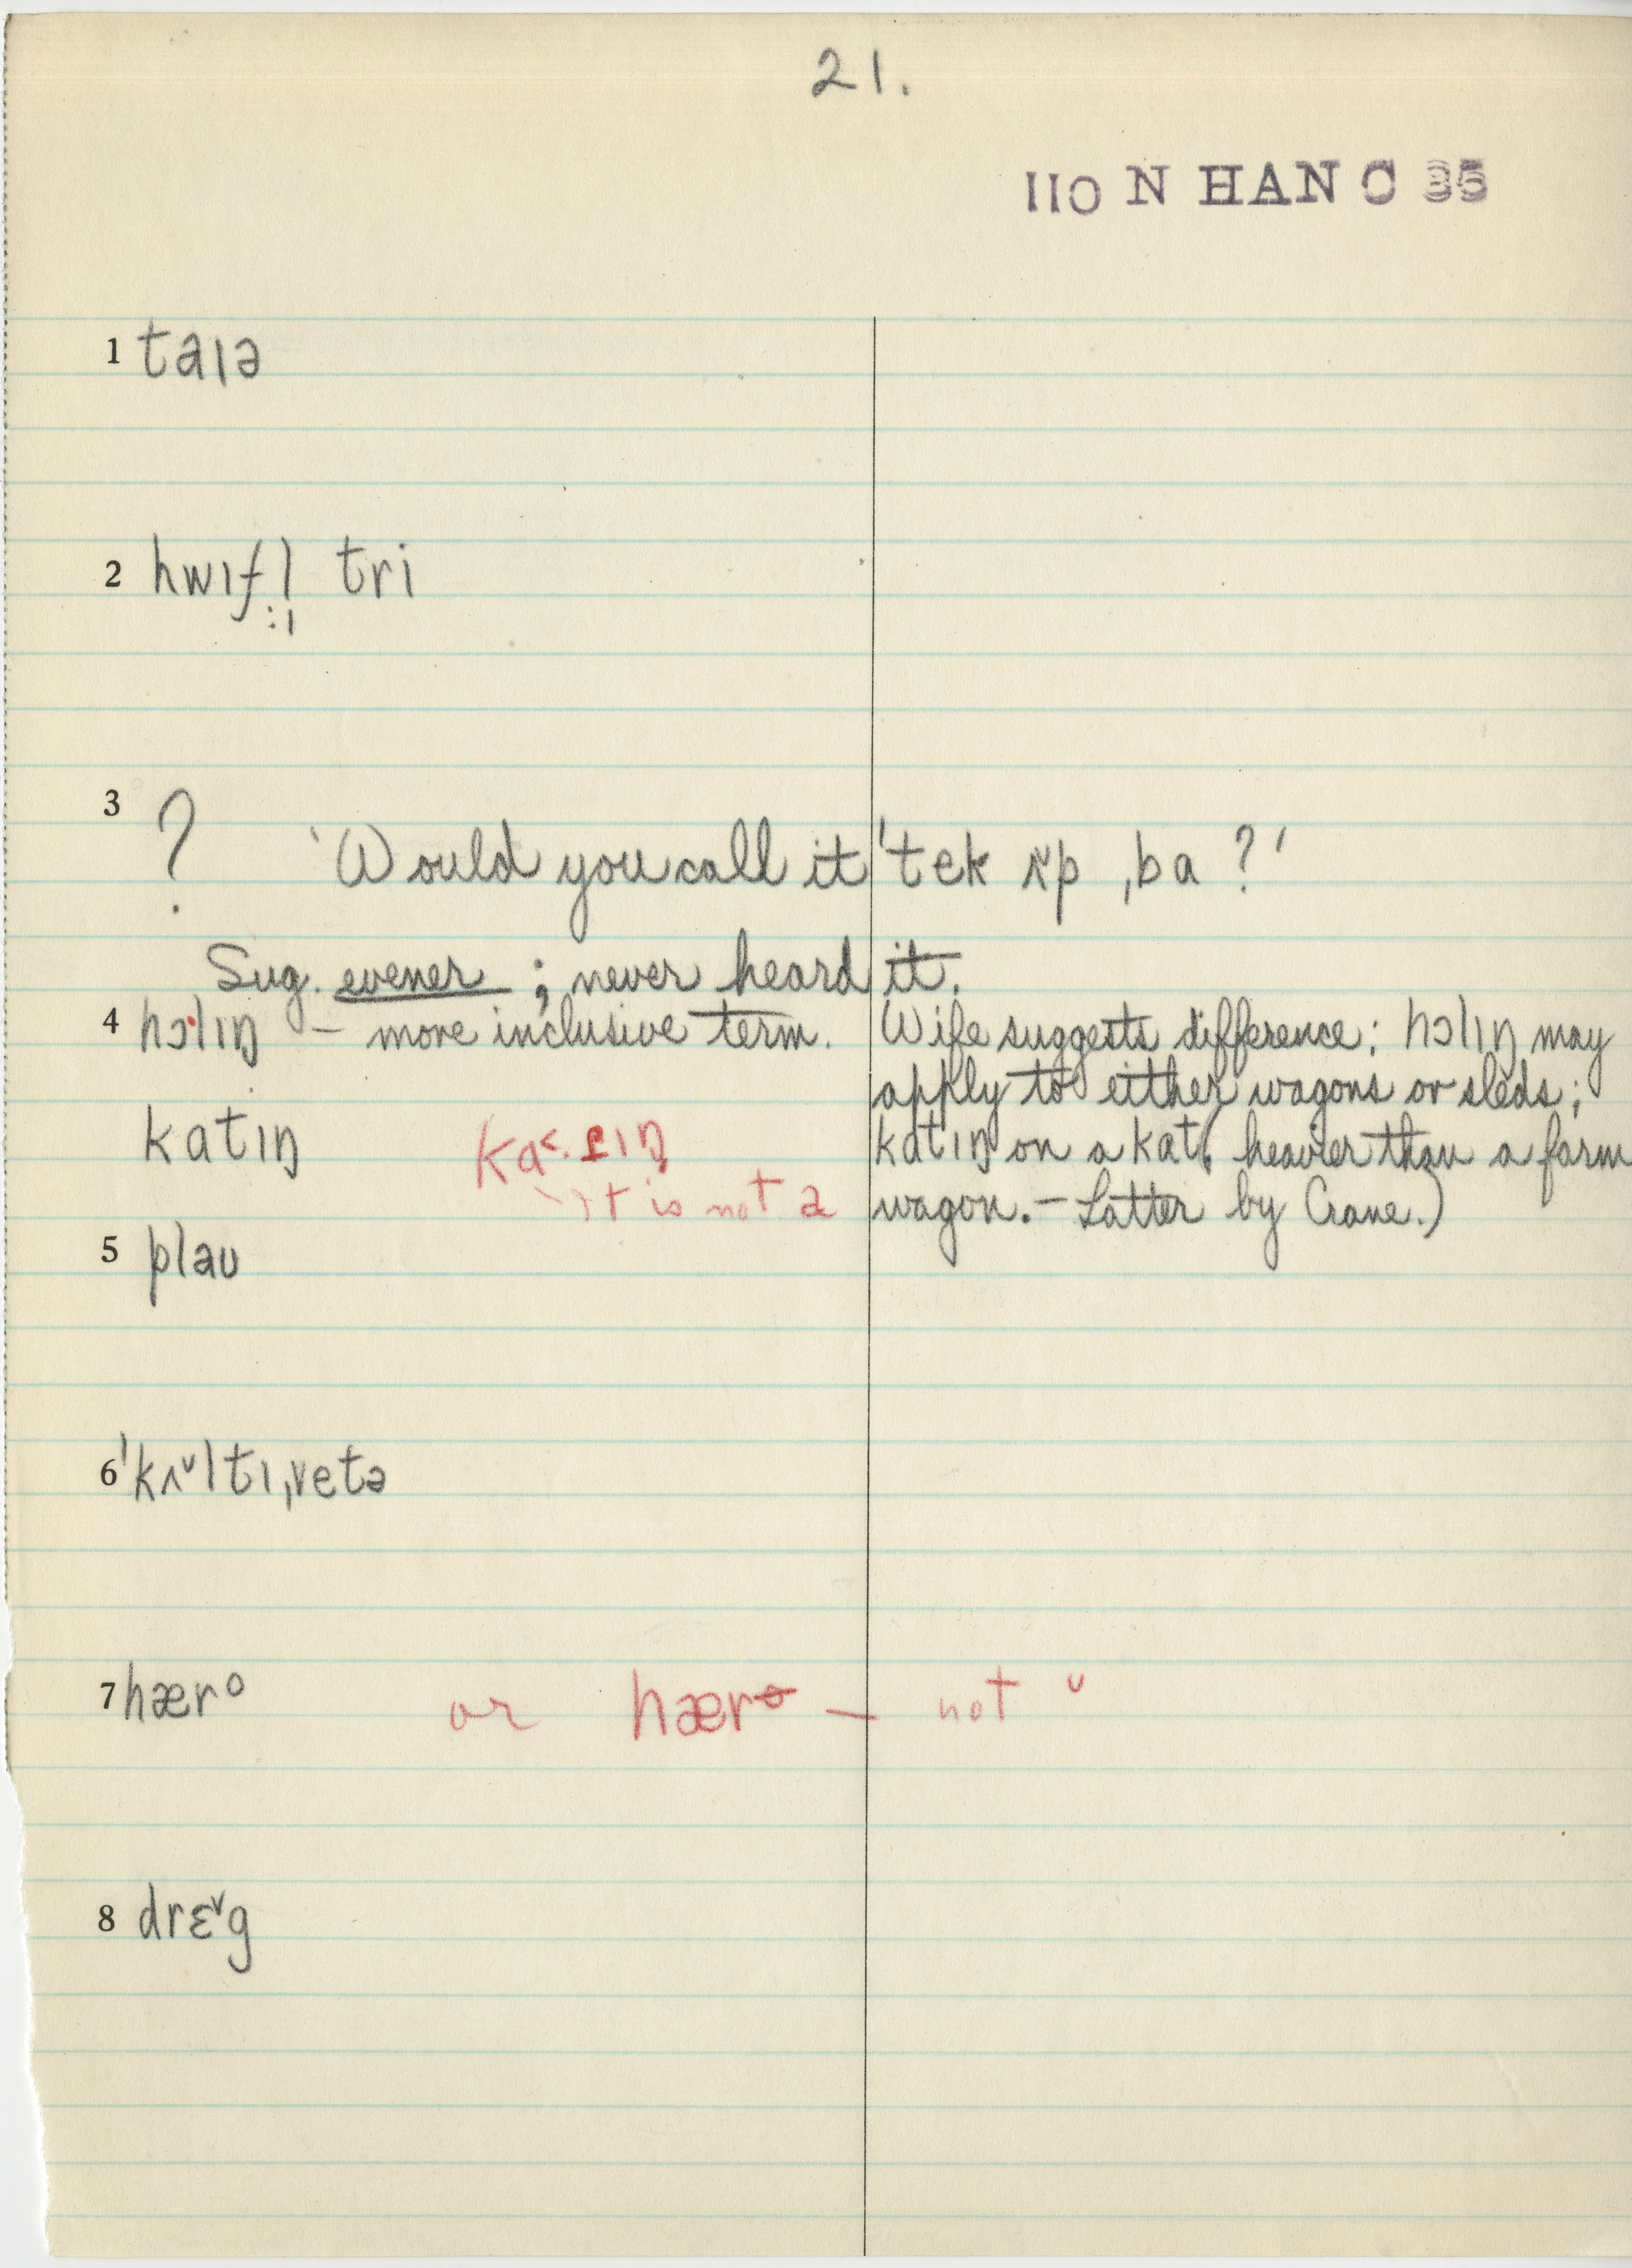 21.
110 N HAN C 35
1 taɪə
2 hwɪfl̩ tri
3 ? 'Would you call it 'tek ʌ˅p ˌba ?'
Sug. evener ; never heard it.
4 hɔlɪŋ – more inclusive term. Wife suggests difference: hɔlɪŋ may
apply to either wagons or sleds;
katɪŋ ka˂. ɪŋ katɪŋ on a kat( heavier than a farm
it is not a wagon. – Latter by Crane.)
5 plaʊ
6 'kʌ˅ltɪˌvetə
7 hærᵒ or hærᶱ – not ᵕ
8 drɛ˅g